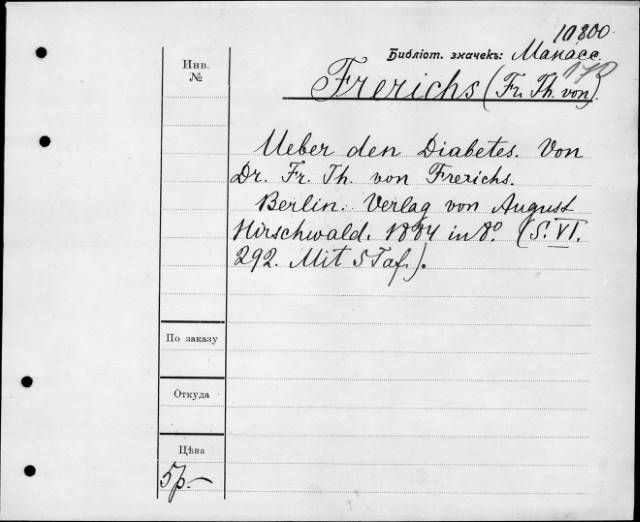 10800
Библіот. значекъ: Манасс.
178
Инв.
№
Frerichs (Fr. Th. von).
Ueber den Diabetes. Von
Dr. Fr. Th. von Frerichs.
Berlin. Verlag von August
Hirschwald. 1884 in 8º. (S. VI.
292. Mit 5 Taf.).
По заказу
Откуда
Цѣна
5р.-